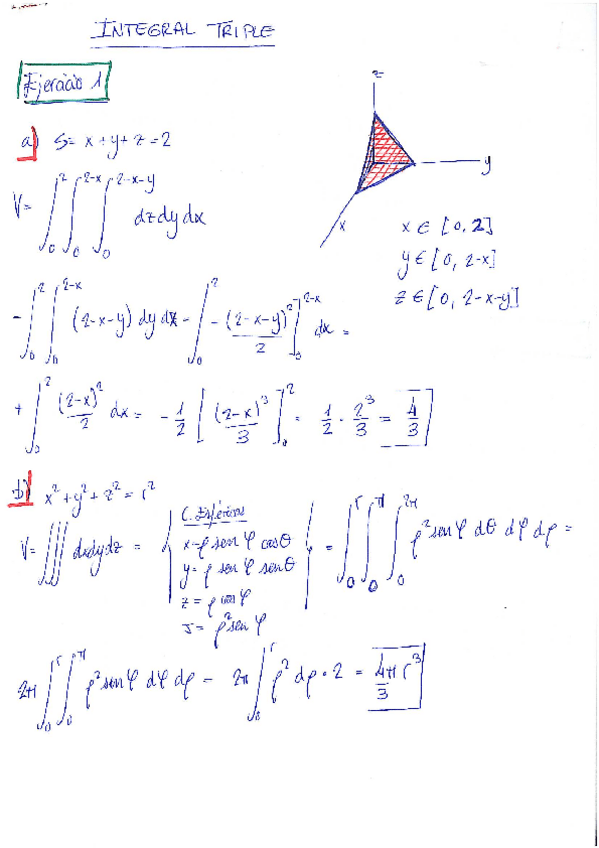 INTEGRAL TRIPLE
Ejercicio 1
a) S= x+y+z=2
z
y
x
V= ∫₀² ∫₀^(2-x) ∫₀^(2-x-y) dz dy dx
x ∈ [0, 2]
y ∈ [0, 2-x]
z ∈ [0, 2-x-y]
= ∫₀² ∫₀^(2-x) (2-x-y) dy dx = ∫₀² -(2-x-y)²/2 ]₀^(2-x) dx =
+ ∫₀² (2-x)²/2 dx = -1/2 [ (2-x)³/3 ]₀² = 1/2 · 2³/3 = 4/3
b) x²+y²+z² = r²
V= ∭ dxdydz = { C. Esféricas
x=ρ sen φ cos θ
y= ρ sen φ sen θ
z = ρ cos φ
J= ρ² sen φ } = ∫₀^r ∫₀^π ∫₀^2π ρ² sen φ dθ dφ dρ =
2π ∫₀^r ∫₀^π ρ² sen φ dφ dρ = 2π ∫₀^r ρ² dρ · 2 = 4π/3 r³